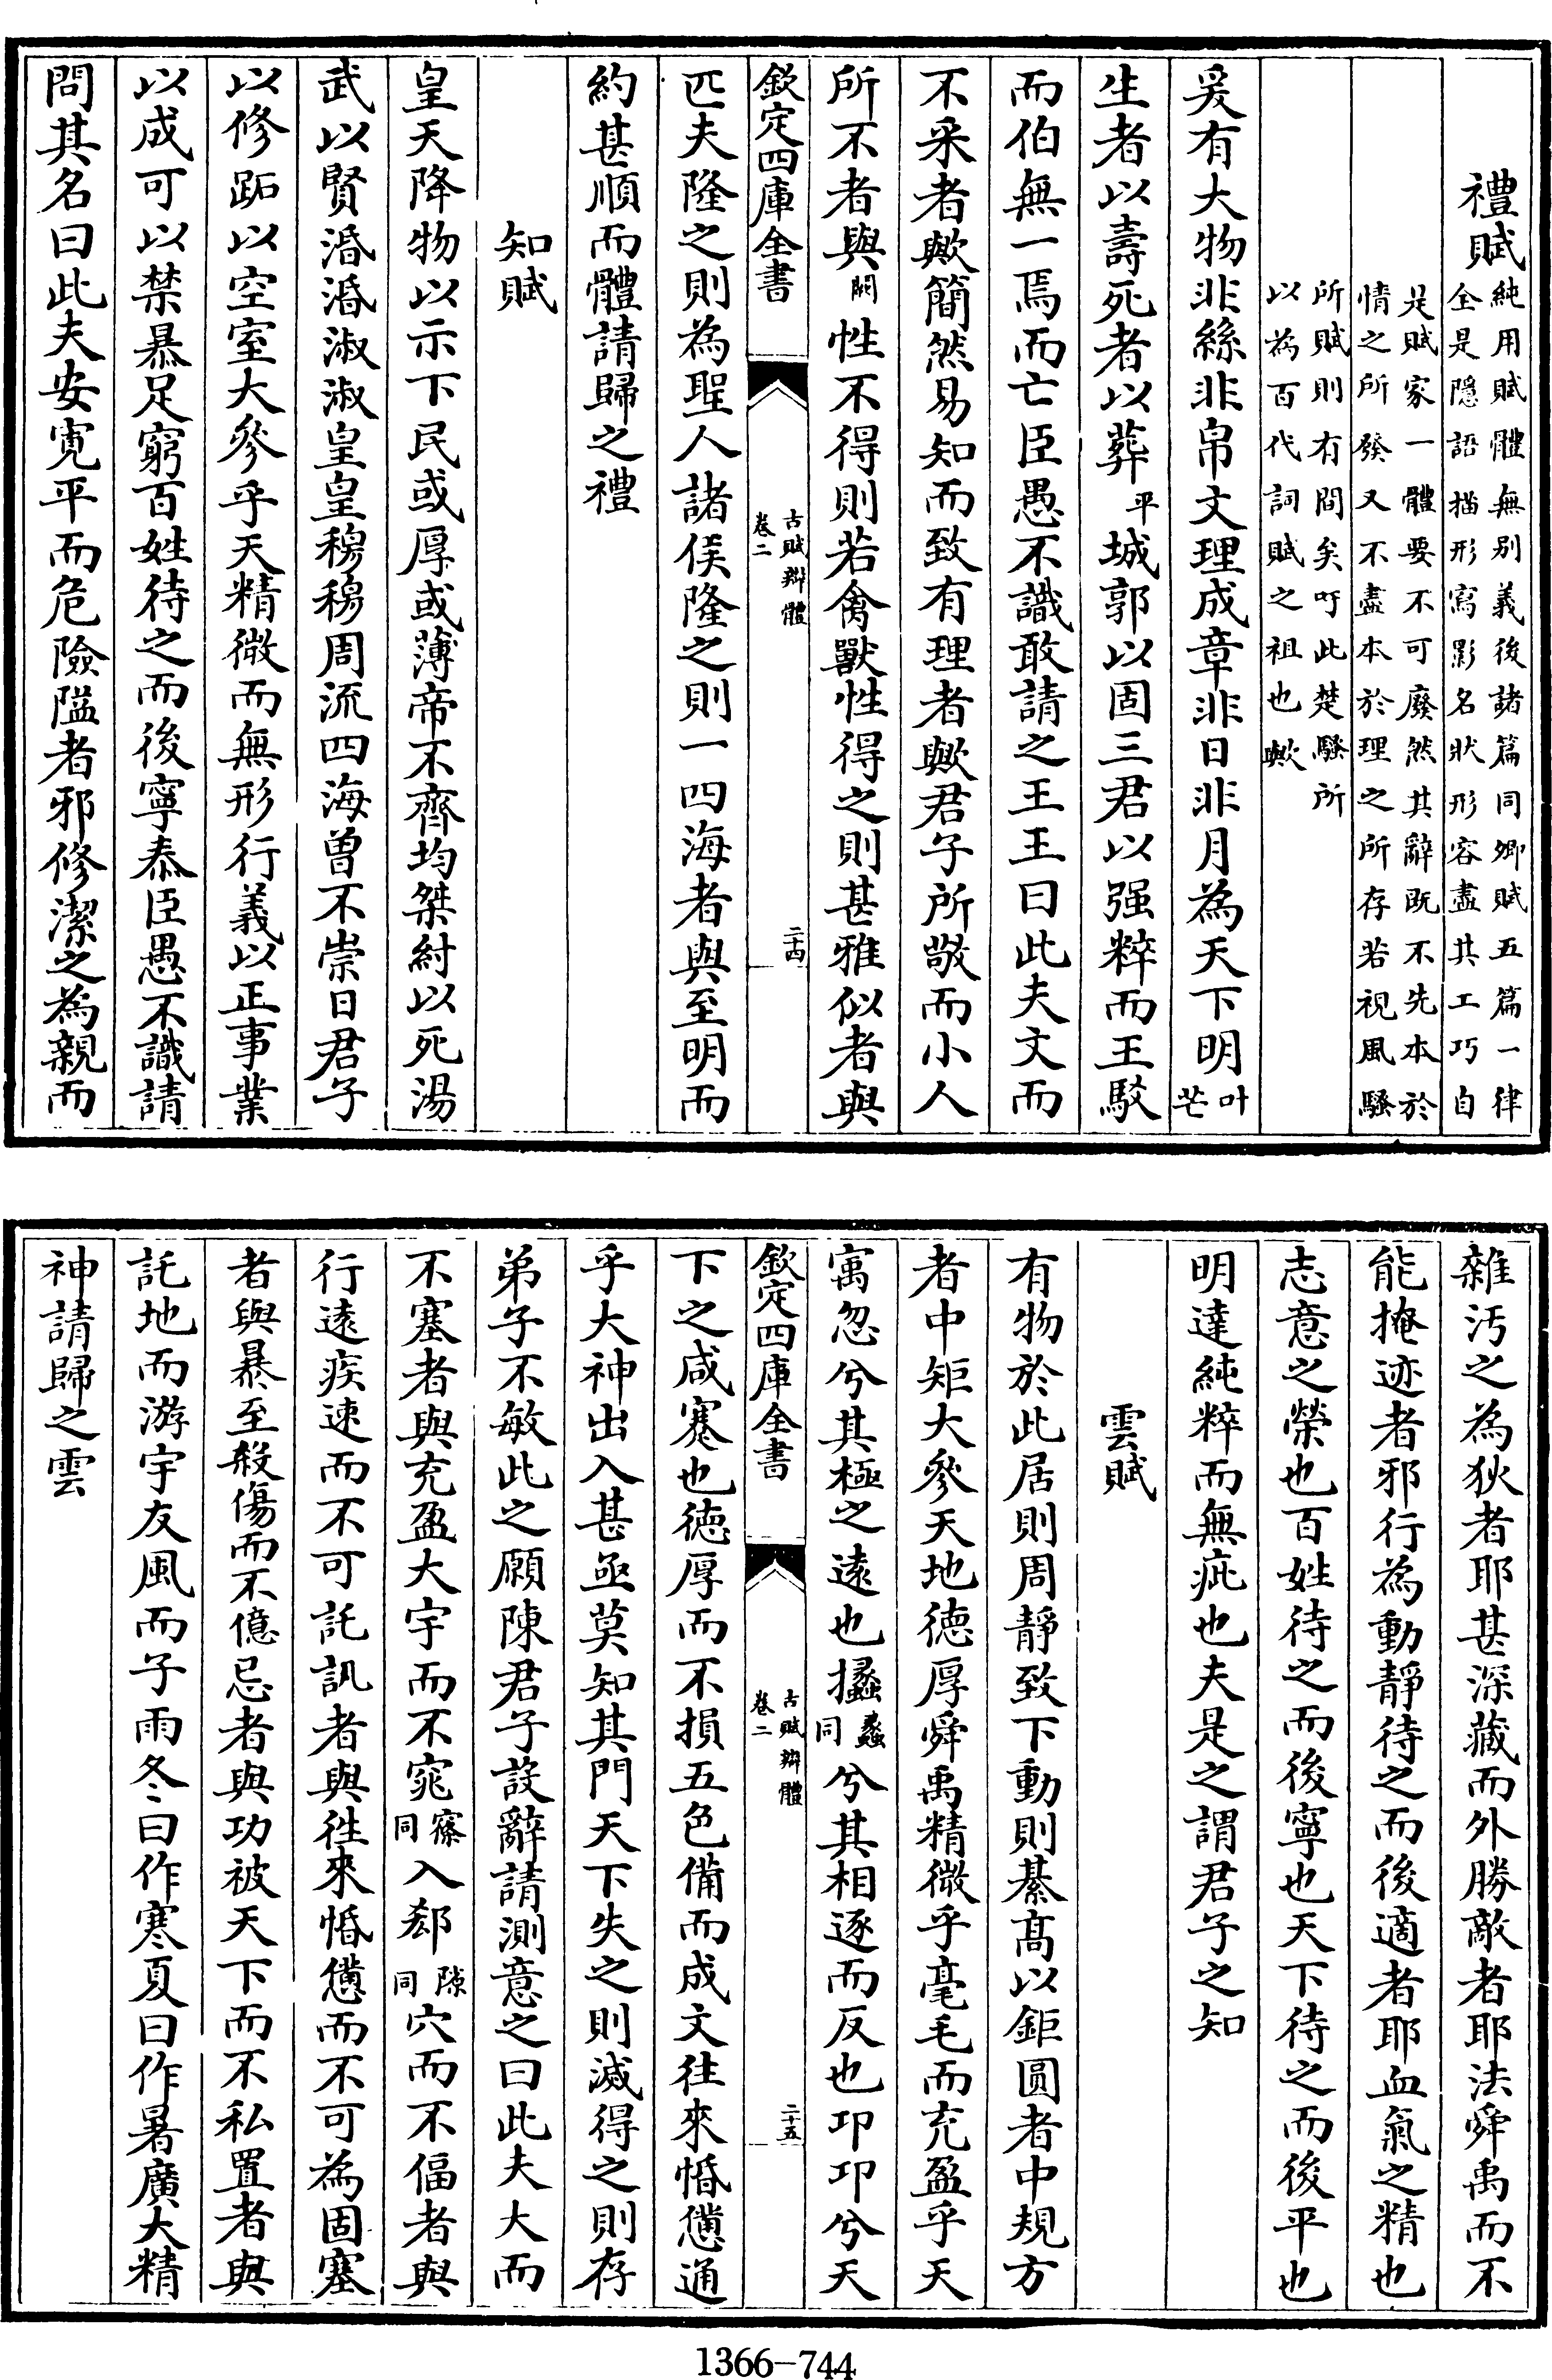 禮賦純用賦體無别義後諸篇同卿賦五篇一律全是隱語描形寫影名狀形容盡其工巧自
是賦家一體要不可廢然其辭既不先本於情之所發又不盡本於理之所存若視風騷
所賦則有間矣吁此楚騷所以為百代詞賦之祖也歟
爰有大物非絲非帛文理成章非日非月為天下明叶芒
生者以壽死者以葬平城郭以固三君以强粹而王駁
而伯無一焉而亡臣愚不識敢請之王王曰此夫文而
不采者歟簡然易知而致有理者歟君子所敬而小人
所不者與闕性不得則若禽獸性得之則甚雅似者與
欽定四庫全書 古賦辯體卷二 二十四
匹夫隆之則為聖人諸侯隆之則一四海者與至明而
約甚順而體請歸之禮
知賦
皇天降物以示下民或厚或薄帝不齊均桀紂以死湯
武以賢湣湣淑淑皇皇穆穆周流四海曾不崇日君子
以修跖以空室大參乎天精微而無形行義以正事業
以成可以禁暴足窮百姓待之而後寧泰臣愚不識請
問其名曰此夫安寛平而危險隘者邪修潔之為親而
雜汚之為狄者耶甚深藏而外勝敵者耶法舜禹而不
能掩迹者邪行為動靜待之而後適者耶血氣之精也
志意之榮也百姓待之而後寧也天下待之而後平也
明達純粹而無疵也夫是之謂君子之知
雲賦
有物於此居則周靜致下動則綦髙以鉅圓者中規方
者中矩大參天地德厚舜禹精微乎毫毛而充盈乎天
寓忽兮其極之遠也攭蠡同兮其相逐而反也卬卬兮天
欽定四庫全書 古賦辯體卷二 二十五
下之咸蹇也徳厚而不損五色備而成文往來惛憊通
乎大神出入甚亟莫知其門天下失之則滅得之則存
弟子不敏此之願陳君子設辭請測意之曰此夫大而
不塞者與充盈大宇而不窕窱同入郄隙同穴而不偪者與
行遠疾速而不可託訊者與往來惛憊而不可為固塞
者與暴至殺傷而不億忌者與功被天下而不私置者與
託地而游宇友風而子雨冬曰作寒夏曰作暑廣大精
神請歸之雲
1366-744